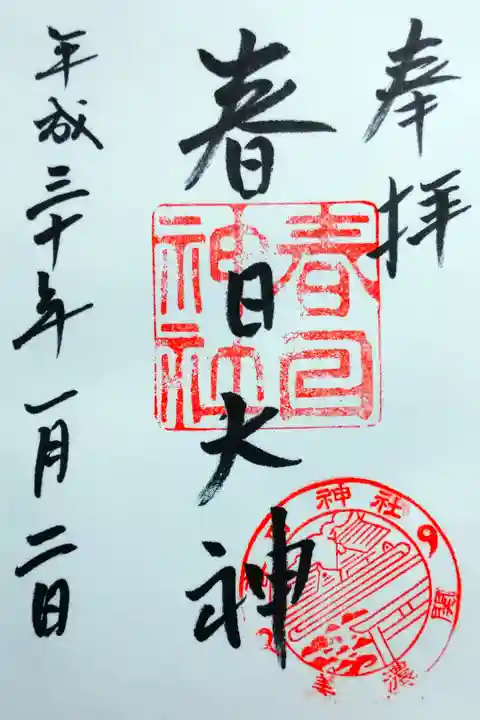 奉拝
春日大神
春日
神社
神社
関
美濃
平成三十年一月二日